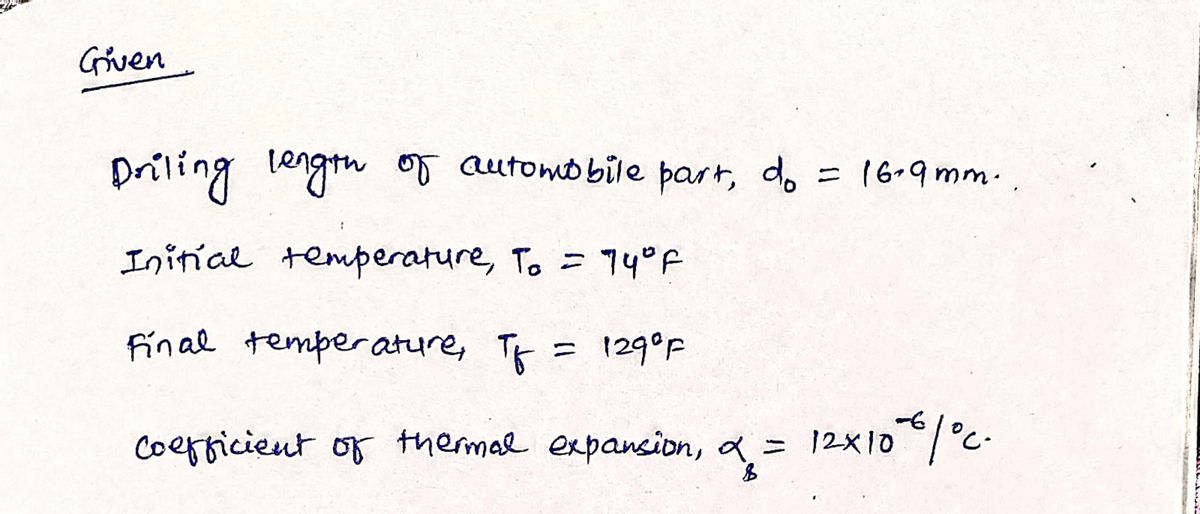 Given.
Driling length of automobile part, d₀ = 16.9 mm.
Initial temperature, T₀ = 74°F
Final temperature, Tf = 129°F
coefficient of thermal expansion, αs = 12×10⁻⁶/°C.